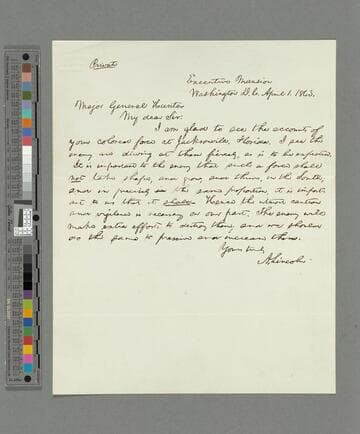 Private
Executive Mansion
Washington D.C. April 1. 1863.
Major General Hunter
My dear Sir:
I am glad to see the accounts of
your colored force at Jacksonville, Florida. I see the
enemy are driving at them fiercely, as is to be expected.
It is important to the enemy that such a force shall
not take shape, and grow, and thrive, in the South;
and in precisely the same proportion, it is import-
ant to us that it shall. Hence the utmost caution
and vigilance is necessary on our part. The enemy will
make extra efforts to destroy them; and we should
do the same to preserve and increase them.
Yours truly
A. Lincoln